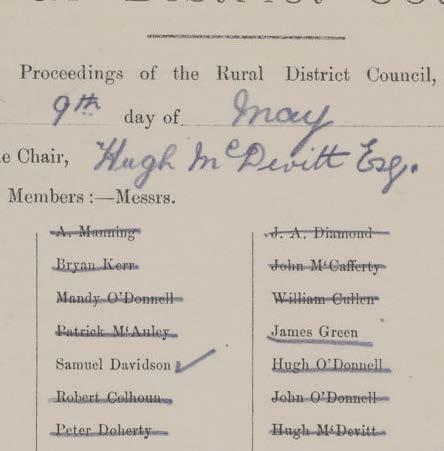 Proceedings of the Rural District Council,
9th day of May
Chair, Hugh McDevitt Esq.
Members :—Messrs.
A. Manning
Bryan Kerr
Mandy O'Donnell
Patrick M'Auley
Samuel Davidson ✓
Robert Colhoun
Peter Doherty
J. A. Diamond
John M'Cafferty
William Cullen
James Green
Hugh O'Donnell
John O'Donnell
Hugh M'Devitt